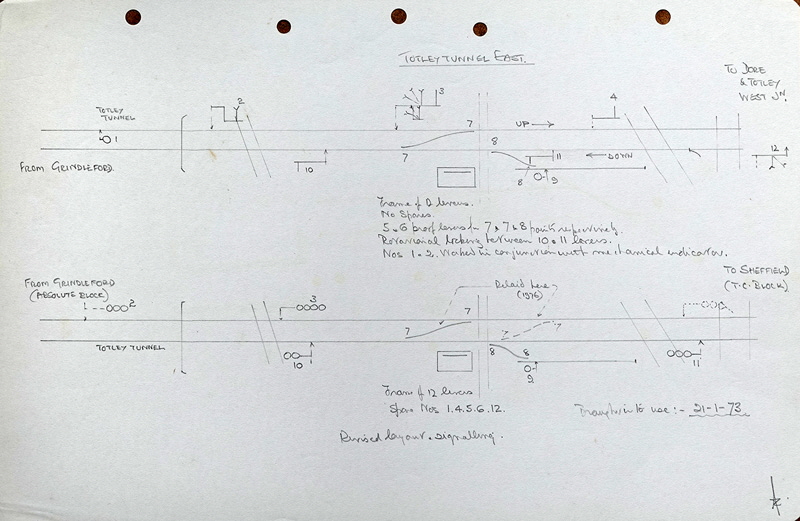 TOTLEY TUNNEL EAST.
TO DORE
& TOTLEY
WEST JN.
TOTLEY
TUNNEL
1
2
3
4
UP →
7
7
8
8
9
10
11
← DOWN
12
FROM GRINDLEFORD
Frame of 12 levers.
No Spares.
5 & 6 proof levers for 7 & 7 & 8 points respectively.
Rotational locking between 10 & 11 levers.
Nos 1 - 2. Worked in conjunction with mechanical indicator.
FROM GRINDLEFORD
(ABSOLUTE BLOCK)
TO SHEFFIELD
(T.C. BLOCK)
Relaid here
(1976)
2
3
7
7
7
7
8
8
9
10
11
TOTLEY TUNNEL
Frame of 12 levers
Spare Nos 1.4.5.6.12.
Brought into use :- 21-1-73
Revised layout & signalling.